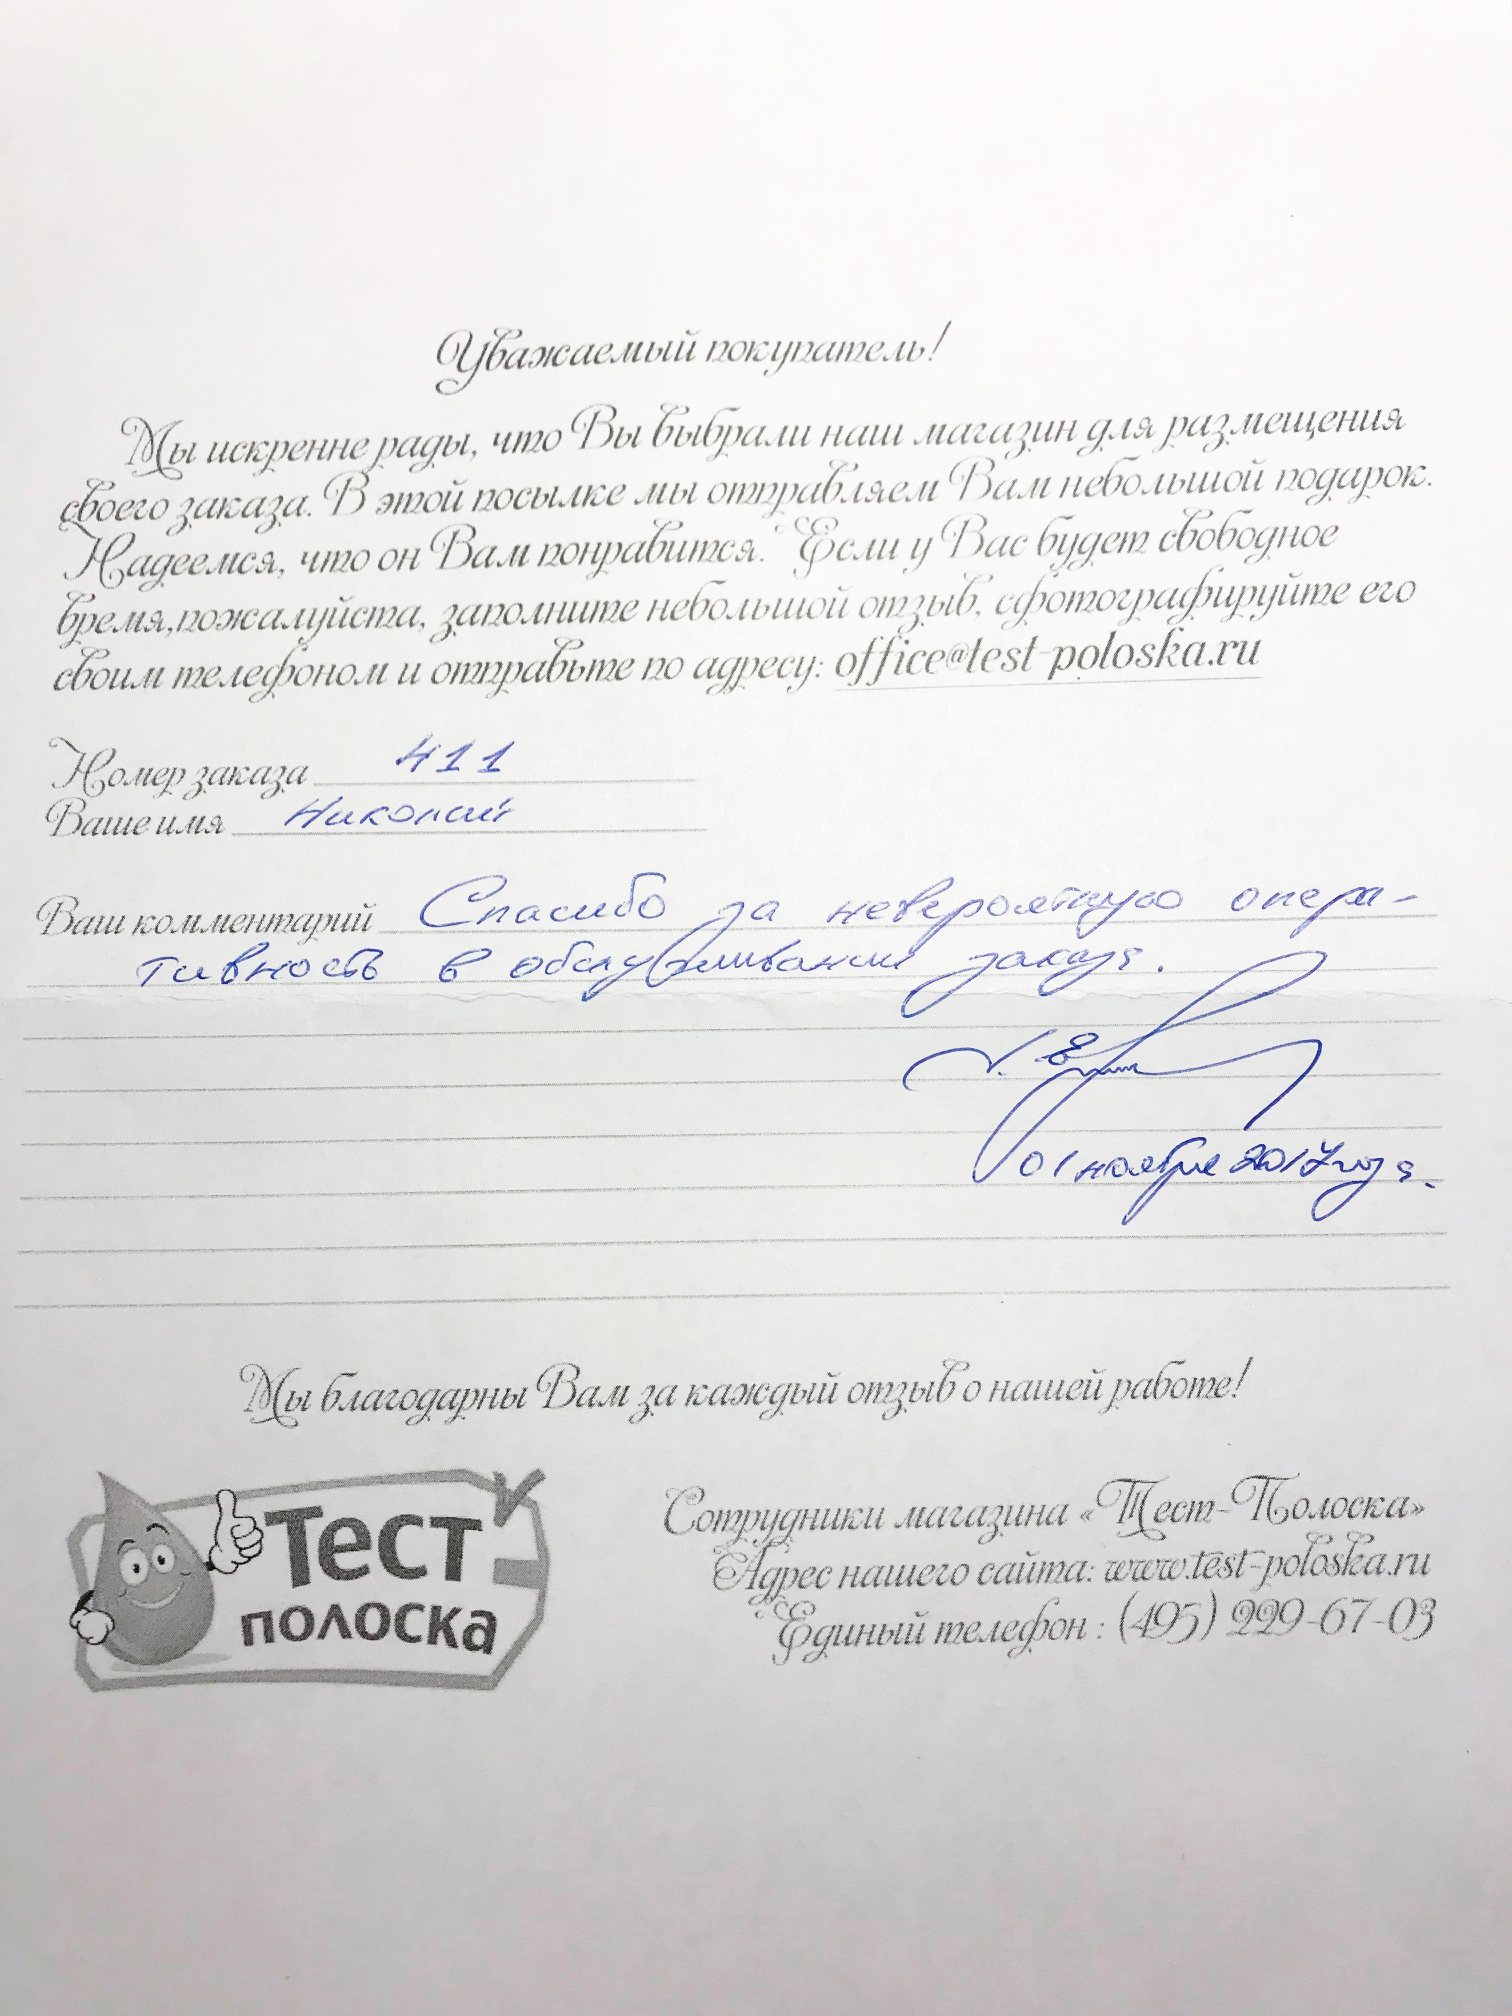 Уважаемый покупатель!
Мы искренне рады, что Вы выбрали наш магазин для размещения
своего заказа. В этой посылке мы отправляем Вам небольшой подарок.
Надеемся, что он Вам понравится. Если у Вас будет свободное
время,пожалуйста, заполните небольшой отзыв, сфотографируйте его
своим телефоном и отправьте по адресу: office@test-poloska.ru
Номер заказа 411
Ваше имя Николай
Ваш комментарий Спасибо за невероятную опера-
тивность в обслуживании заказа.
01 ноября 2017 года.
Мы благодарны Вам за каждый отзыв о нашей работе!
Тест
полоска
Сотрудники магазина «Тест-Полоска»
Адрес нашего сайта: www.test-poloska.ru
Единый телефон : (495) 229-67-03